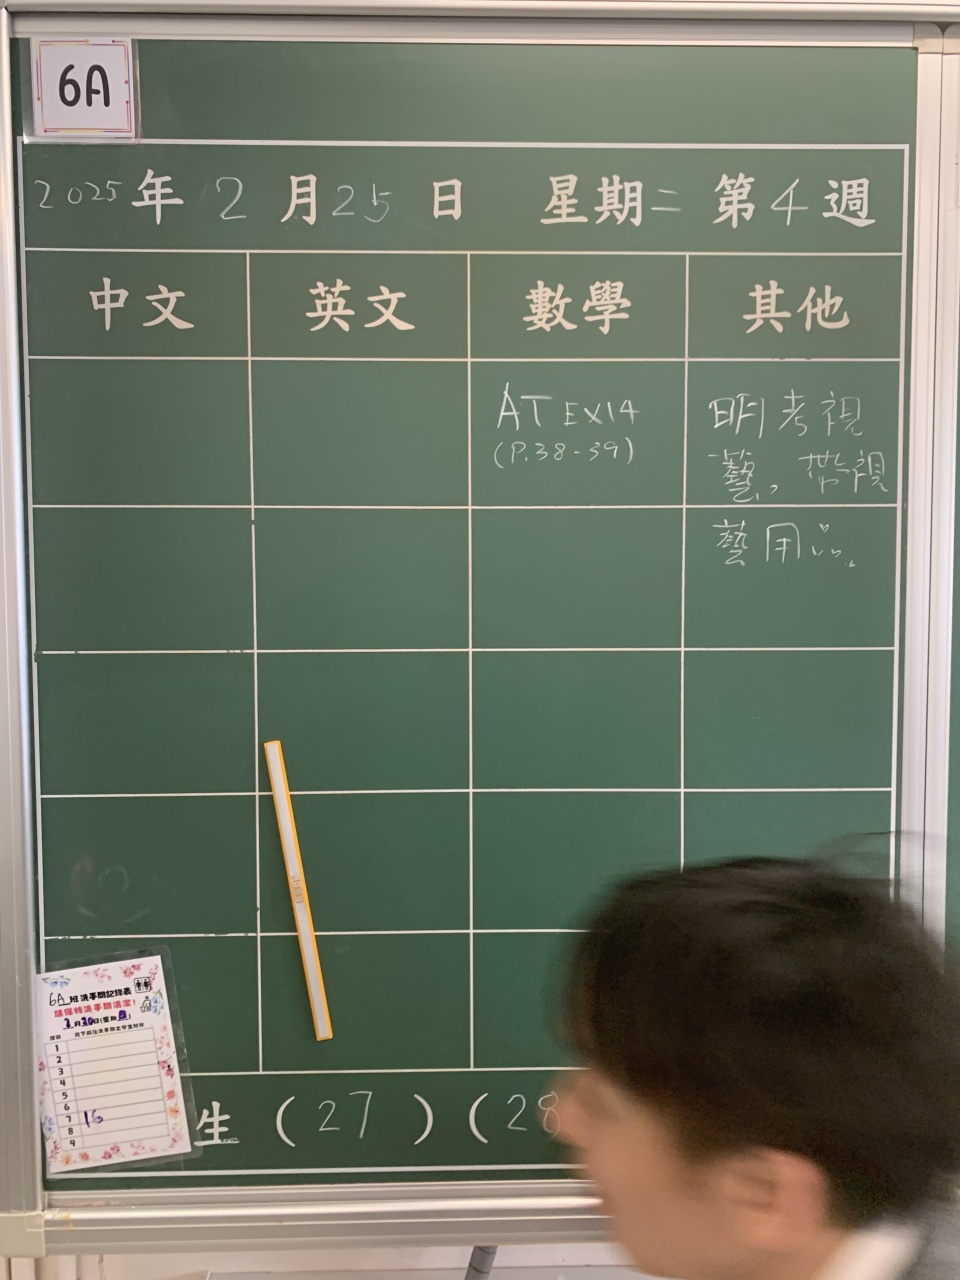 6A
2025 年 2 月 25 日 星期二 第 4 週
中文 英文 數學 其他
AT EX14
(P.38-39)
明考視
藝，帶視
藝用品。
6A 班洗手間記錄表
請保持洗手間清潔！
1
2
3
4
5
6
7 16
8
9
生 ( 27 ) ( 28